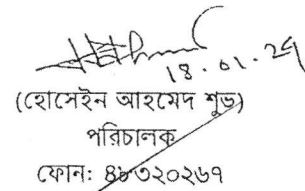 18.01.24
(হোসেইন আহমেদ শুভ)
পরিচালক
ফোন: ৪৮৩২০২৬৭